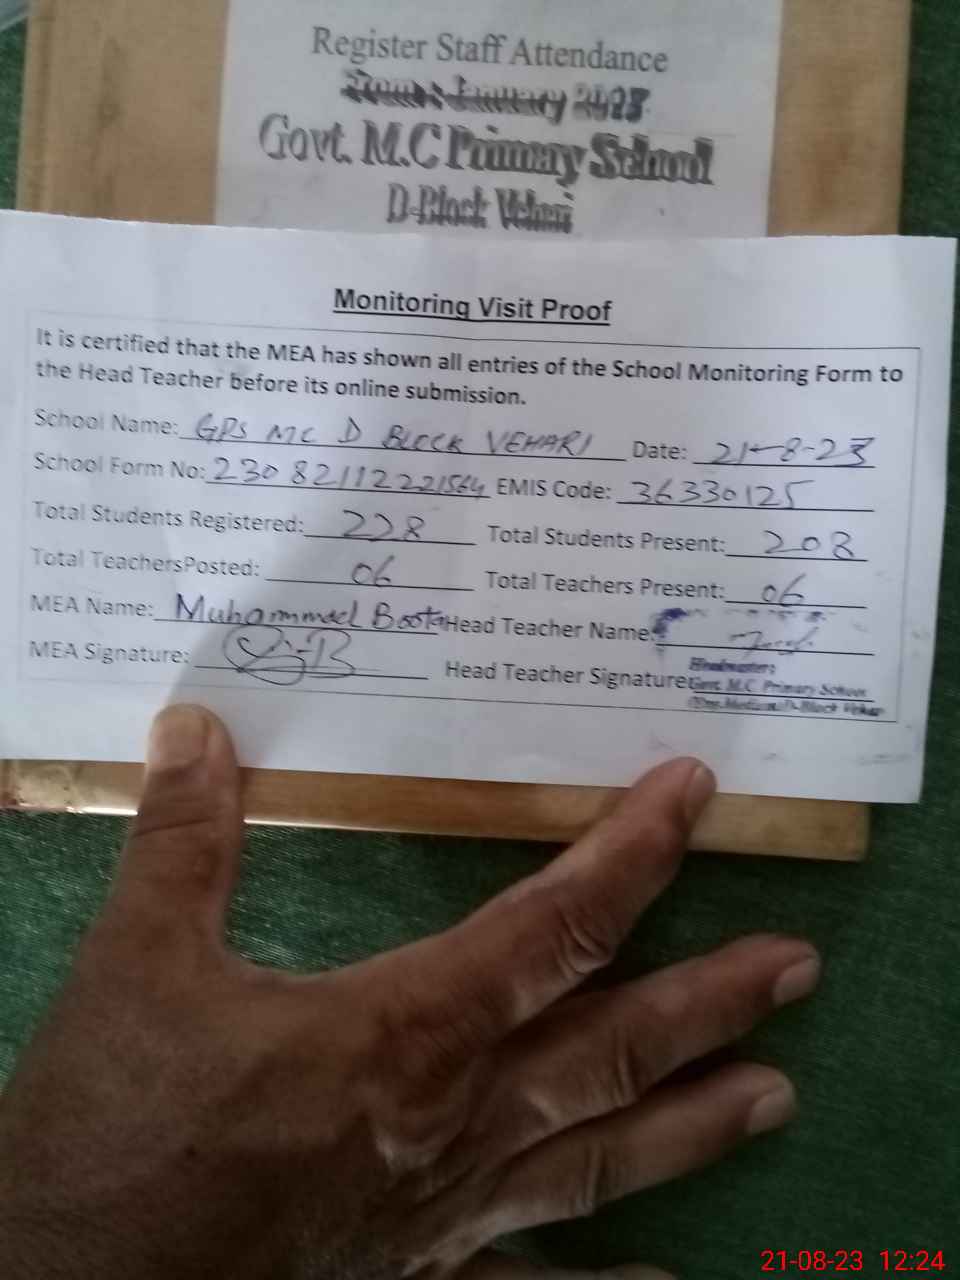 Register Staff Attendance
From : January 2023
Govt. M.C Primary School
D-Block Vehari
Monitoring Visit Proof
It is certified that the MEA has shown all entries of the School Monitoring Form to
the Head Teacher before its online submission.
School Name: GPS MC D BLOCK VEHARI Date: 21-8-23
School Form No: 230821122221564 EMIS Code: 36330125
Total Students Registered: 228 Total Students Present: 208
Total TeachersPosted: 06 Total Teachers Present: 06
MEA Name: Muhammad Boota Head Teacher Name:
MEA Signature: Head Teacher Signature:
Headmaster
Govt. M.C. Primary School
D-Block Vehari
21-08-23 12:24